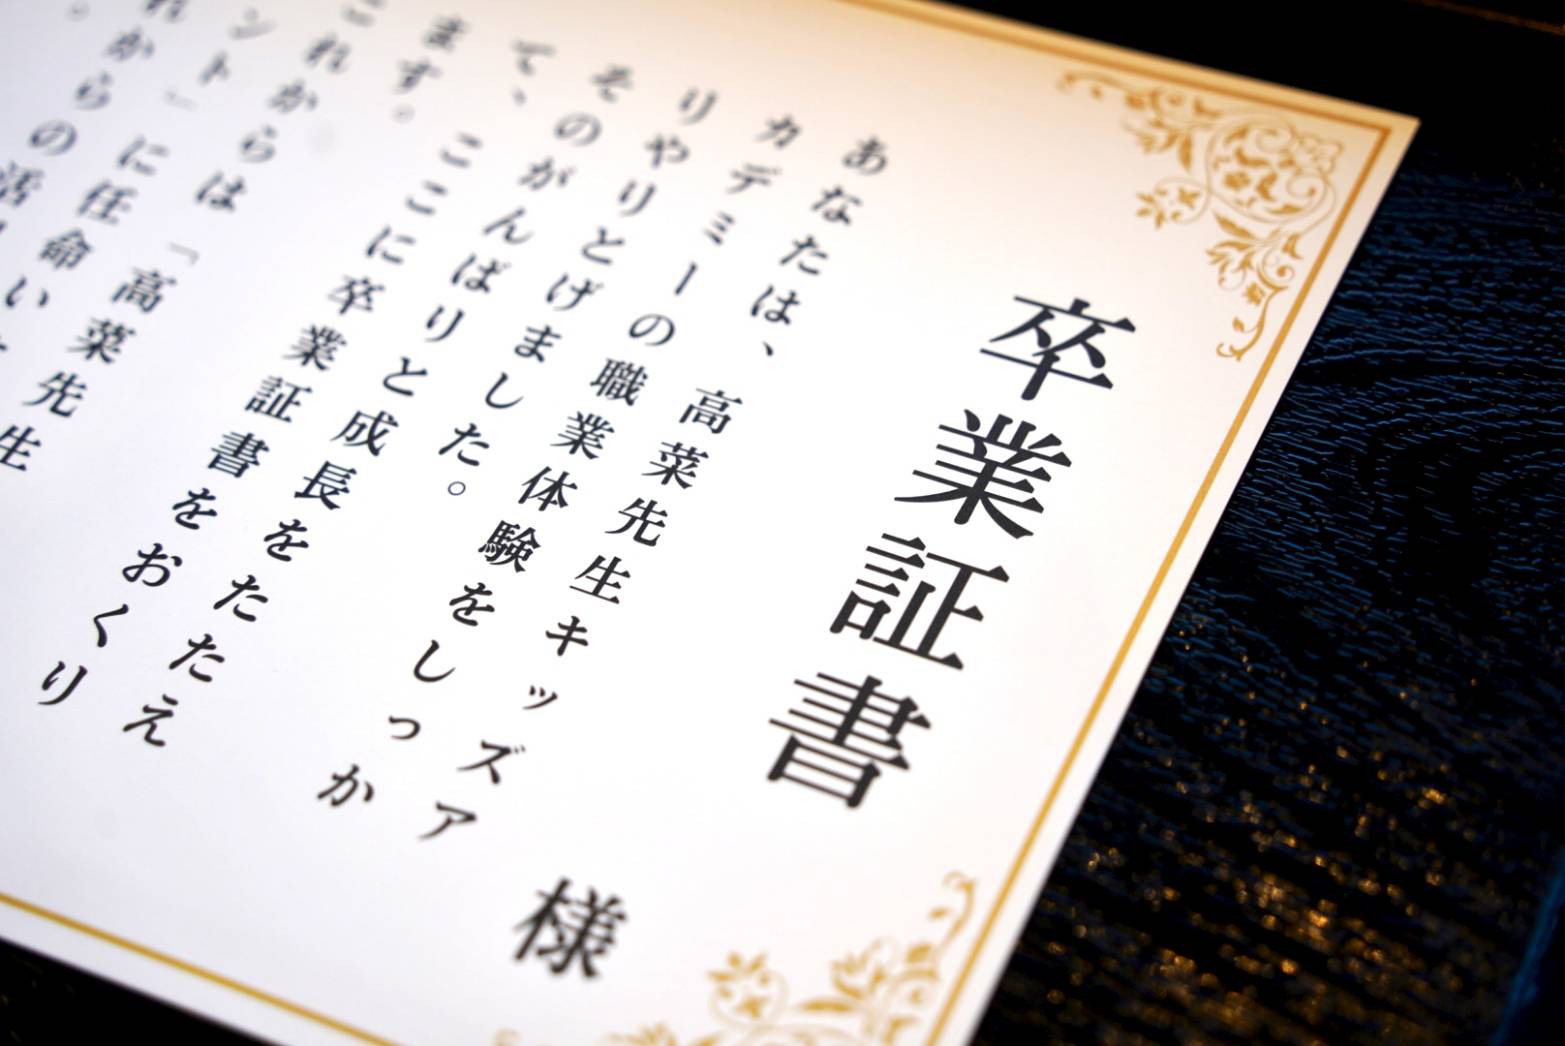 卒業証書
様
あなたは、高菜先生キッズア
カデミーの職業体験をしっか
りやりとげました。
そのがんばりと成長をたたえ
て、ここに卒業証書をおくり
ます。
これからは「高菜先生
ント」に任命い
れからの活